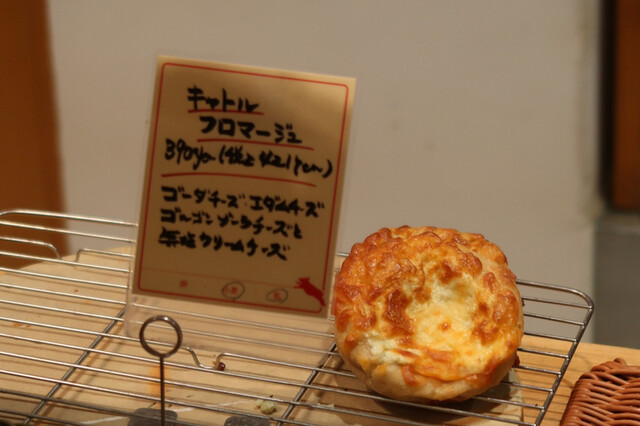 キャトル
フロマージュ
390yen(税込 ¥421yen)
ゴーダチーズ・エダムチーズ
ゴルゴンゾーラチーズと
無塩クリームチーズ